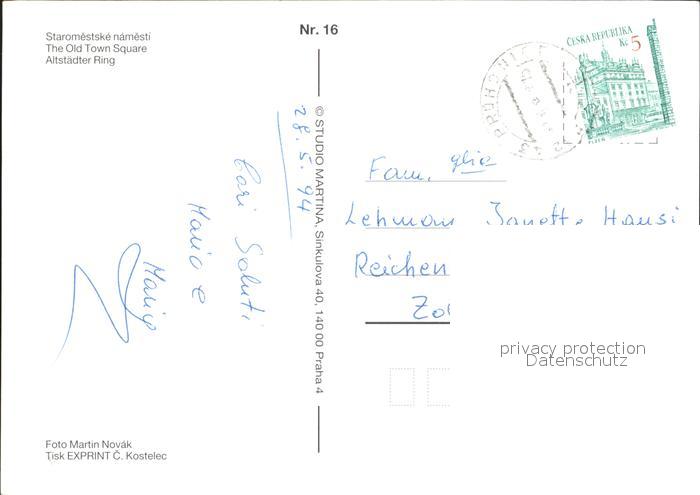 Staroměstské náměstí
The Old Town Square
Altstädter Ring
Nr. 16
ČESKÁ REPUBLIKA
Kč 5
PLZEŇ
PRŮHONICE
© STUDIO MARTINA, Sinkulova 40, 140 00 Praha 4
28.5.94
Cari Saluti
Mario e
Fam. glia
Lehmann Hansi
Reichen
Zo
privacy protection
Datenschutz
Foto Martin Novák
Tisk EXPRINT Č. Kostelec